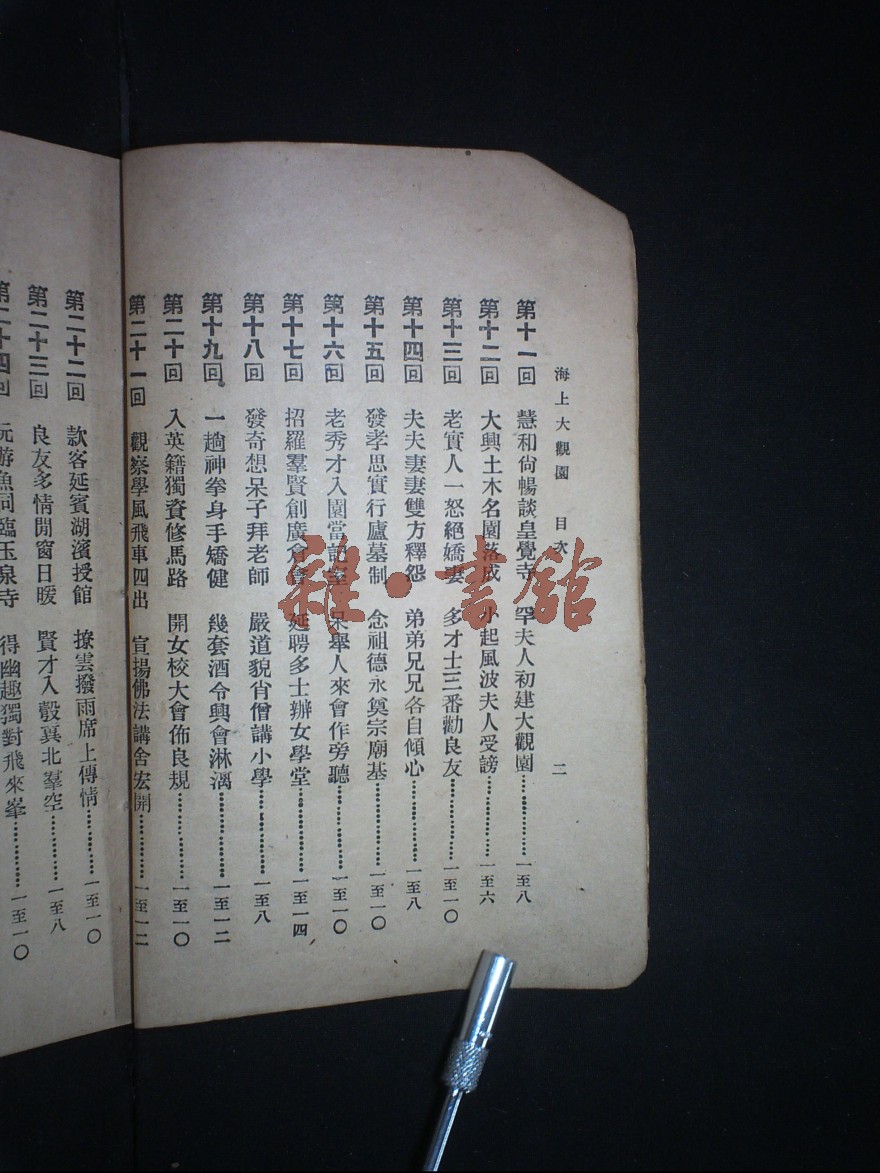 海上大觀園 目次 二
第十一回 慧和尙暢談皇覺寺 罕夫人初建大觀園⋯⋯⋯⋯一至八
第十二回 大興土木名園落成 小起風波夫人受謗⋯⋯⋯⋯一至六
第十三回 老實人一怒絕嬌妻 多才士三番勸良友⋯⋯⋯⋯一至一〇
第十四回 夫夫妻妻雙方釋怨 弟弟兄兄各自傾心⋯⋯⋯⋯一至八
第十五回 發孝思實行廬墓制 念祖德永奠宗廟基⋯⋯⋯⋯一至一〇
第十六回 老秀才入園當記室 呆舉人來會作旁聽⋯⋯⋯⋯一至一〇
第十七回 招羅羣賢創廣倉會 延聘多士辦女學堂⋯⋯⋯⋯一至一四
第十八回 發奇想呆子拜老師 嚴道貌肖僧講小學⋯⋯⋯⋯一至八
第十九回 一趟神拳身手矯健 幾套酒令興會淋漓⋯⋯⋯⋯一至一二
第二十回 入英籍獨資修馬路 開女校大會佈良規⋯⋯⋯⋯一至一〇
第二十一回 觀察學風飛車四出 宣揚佛法講舍宏開⋯⋯⋯⋯一至一二
第二十二回 款客延賓湖濱授館 撩雲撥雨席上傳情⋯⋯⋯⋯一至一〇
第二十三回 良友多情閒窗日暖 賢才入彀冀北羣空⋯⋯⋯⋯一至八
第二十四回 玩游魚同臨玉泉寺 得幽趣獨對飛來峯⋯⋯⋯⋯一至一〇
雜·書館